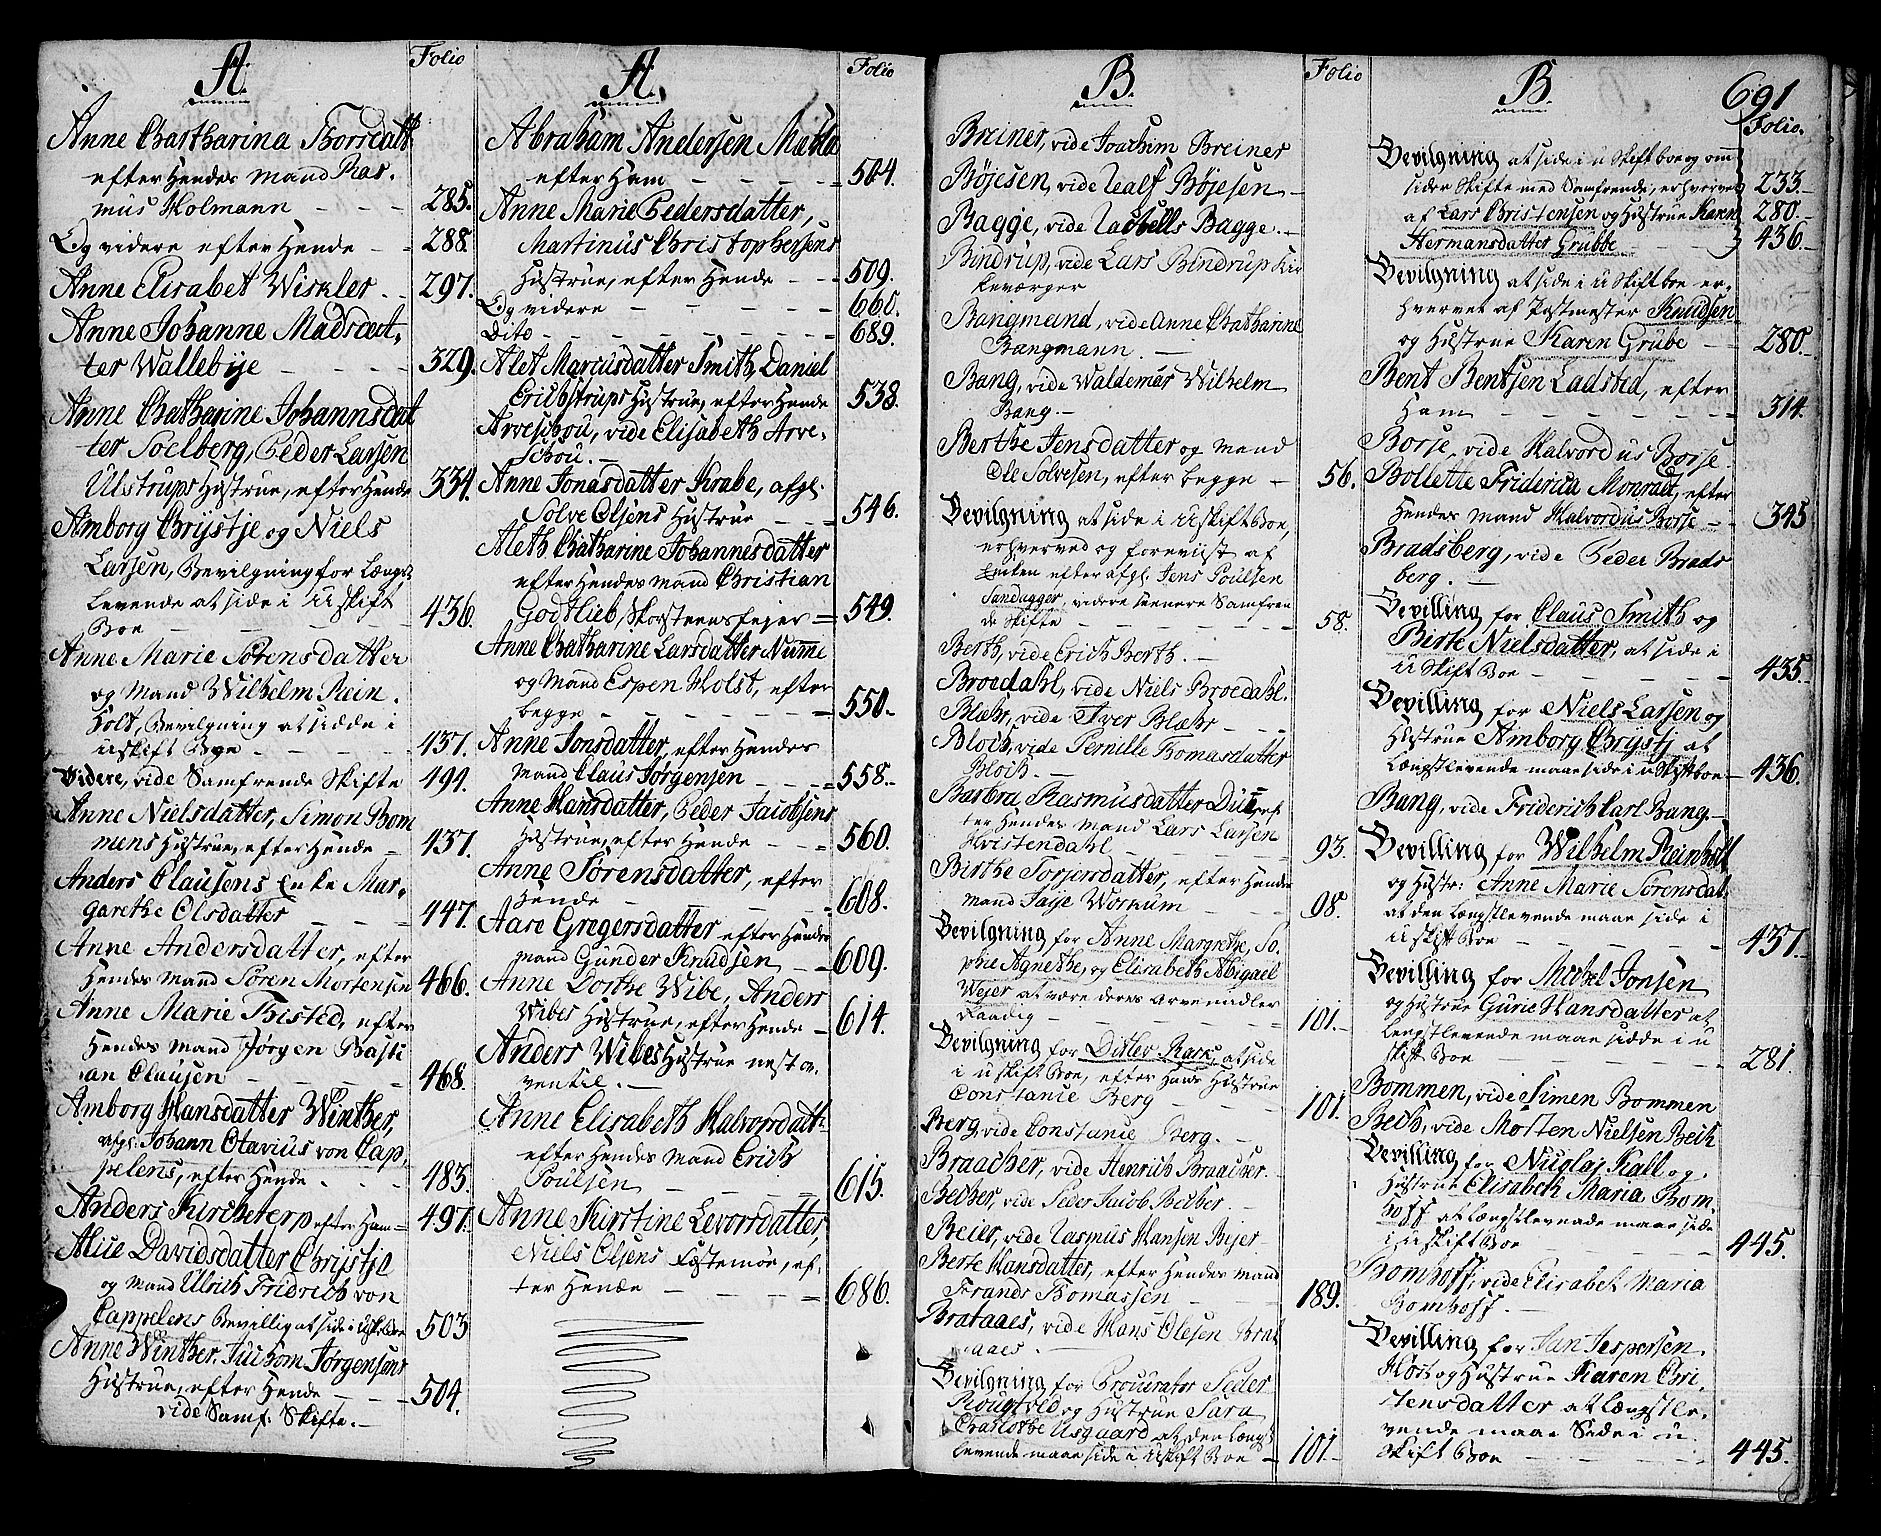 A.
Folio
Anne Chatharina Thorsdatt
efter Hendes Mand Ras-
mus Holmann - - - 285.
Og videre efter Hende - - 288.
Anne Elisabet Winkler - - 297.
Anne Johanne Madsdat-
ter Wallebye - - - - 329.
Anne Chatharine Johannsdat
ter Soelberg, Peder Larsen
Ulstrups Hustrue, efter Hende 334.
Amborg Chrystje og Niels
Larsen, Bevilgning for Længst
Levende at side i Uskift
Boe - - - - 436.
Anne Marie Sørensdatter
og Mand Wilhelm Rein-
holt, Bevilgning at sidde i
Uskift Boe - - - - 437.
Videre, vide Samfrende Skifte 491.
Anne Nielsdatter, Simon Bom
mens Hustrue, efter Hende - 437.
Anders Clausens Enke Mar-
garethe Olsdatter - - - 447.
Anne Andersdatter, efter
Hendes Mand Søren Mortensen 466.
Anne Marie Thisted, efter
Hendes Mand Jørgen Basti
an Clausen - - - - 468.
Amborg Hansdatter Winther,
afgl: Johann Otavius von Cap
pelens, efter Hende - - 483.
Anders Kircheterp efter Ham - 497.
Alice Davidsdatter Chrystje
og Mand Ulrich Fridrich von
Cappelens Bevillig at side i Uskift Boe 503
Anne Winther, Juchom Jørgensens
Hustrue, efter Hende - - 504.
vide Samf: Skifte. -
A.
Folio
Abraham Andersen Mæhla
efter Ham - - - - 504.
Anne Marie Pedersdatter,
Martinus Christophersens
Hustrue, efter Hende - - 509.
Og videre - - - - 660.
Dito - - - - 689.
Alet Marcusdatter Smith, Daniel
Erichstrups Hustrue, efter Hende 538.
Arveschou, vide Elisabeth Arve-
schou. -
Anne Jonasdatter Krabe, afgl.
Solve Olsens Hustrue - - 546.
Aleth Chatharine Johannesdatter
efter Hendes Mand Christian
Godtlieb, Skorsteensfejer = 549.
Anne Chatharine Larsdatter Numme
og Mand Espen Holst, efter
begge - - - - 550.
Anne Jonsdatter, efter Hendes
Mand Claus Jørgensen - - 558.
Anne Hansdatter, Peder Jacobsens
Hustrue, efter Hende - - 560.
Anne Sørensdatter, efter
Hende - - - - 608.
Aase Gregersdatter efter Hendes
Mand Gunder Knudsen - - 609.
Anne Dorthe Wibe, Anders
Wibes Hustrue, efter Hende - 614.
Anders Wibes Hustrue nest o-
ventil. -
Anne Elisabeth Halvorsdatt:
efter Hendes Mand Erich
Poulsen - - - - 615.
Anne Kirstine Levorsdatter,
Niels Olsens Fostemor, ef-
ter Hende - - - - 686.
B.
Folio
Breiner, vide Joachim Breiner
Bøjesen, vide Ualf Bøjesen -
Bagge, vide Isabells Bagge. -
Bindrup, vide Lars Bindrup Kir
keværger
Bangmand, vide Anne Chatharine
Bangmann. -
Bang, vide Waldemar Wilhelm
Bang. -
Berthe Jensdatter og Mand
Ole Solvesen, efter begge - 56.
Bevilgning at side i Uskift Boe,
erhverved og foreviist af
Enken efter afgl. Jens Poulsen
Sandagger, videre senere Samfren
de Skifte - - - - 58.
Berth, vide Erich Berth. -
Broedahl, vide Niels Broedahl.
Blæhr, vide Iver Blæhr - - -
Bloch, vide Pernille Thomasdatter
Bloch. -
Barbra Rasmusdatter Due, ef-
ter Hendes Mand Lars Larsen
Hvistendahl - - - - 93.
Birthe Torjersdatter, efter Hendes
Mand Jaye Workum - - - 98.
Bevilgning for Anne Margrethe, So-
phie Agnethe, og Elisabeth Abigael
Wejer at være deres Arve midler
Raadig - - - - 101.
Bevilgning for Ditlev Rark, at side
i Uskift Boe, efter hans Hustrue
Constancie Berg - - - 101.
Berg, vide Constancie Berg. -
Braacher, vide Henrich Braacher.
Becher, vide Peder Jacob Becher. -
Beier, vide Rasmus Hansen Bejer -
Berte Hansdatter, efter Hendes Mand
Frands Thomassen - - - 189.
Brataaes, vide Hans Olesen Brat
aaes. -
Bevilgning for Procurator Peder
Rougtved og Hustrue Sara
Charlothe Usgaard at den Længst
levende maae side i Uskift Boe - 101.
B.
691
Folio.
Bevilgning at side i U Skift boe og om
sider Skifte med Samfrende, erhvervet 233.
af Lars Christensen og Hustrue Karen 280.
Hermansdatter Grubbe - - - 436.
Bevilgning at side i U Skift boe er-
hvervet af Postmester Knudsen
og Hustrue Karen Grube - - 280.
Bent Bentsen Ladsted, efter
Ham - - - - 314.
Borse, vide Halvordus Borse.
Bollette Friderica Monradt, efter
Hendes Mand Halvordus Borse - 345
Bradsberg, vide Peder Brads
berg. -
Bevilling for Claus Smith og
Birte Nielsdatter, at side i
U Skift Boe - - - - 435.
Bevilling for Niels Larsen og
Hustrue Amborg Chrystj at
Længstlevende maae side i U Skift boe - 436.
Bang, vide Friderich Carl Bang. -
Bevilling for Wilhelm Reinholt
og Hustr: Anne Marie Sørensdat.
at den Længstlevende maae side i
Uskift Boe - - - - 437.
Bevilling for Michel Jonsen
og Hustrue Gurie Hansdatter at
Længstlevende maae sidde i U
Skift Boe - - - - 281.
Bommen, vide Simen Bommen
Bech, vide Morten Nielsen Bech
Bevilling for Nicolaj Kall og
Hustrue Elisabeth Maria Bom-
hoff at Længstlevende maae side
i U Skift Boe - - - - 445.
Bomhoff, vide Elisabet Maria
Bomhoff. -
Bevilling for Jan Jespersen
Host og Hustrue Karen Chri-
stensdatter at Længstle-
vende maae Side i U-
skift Boe - - - - 445.